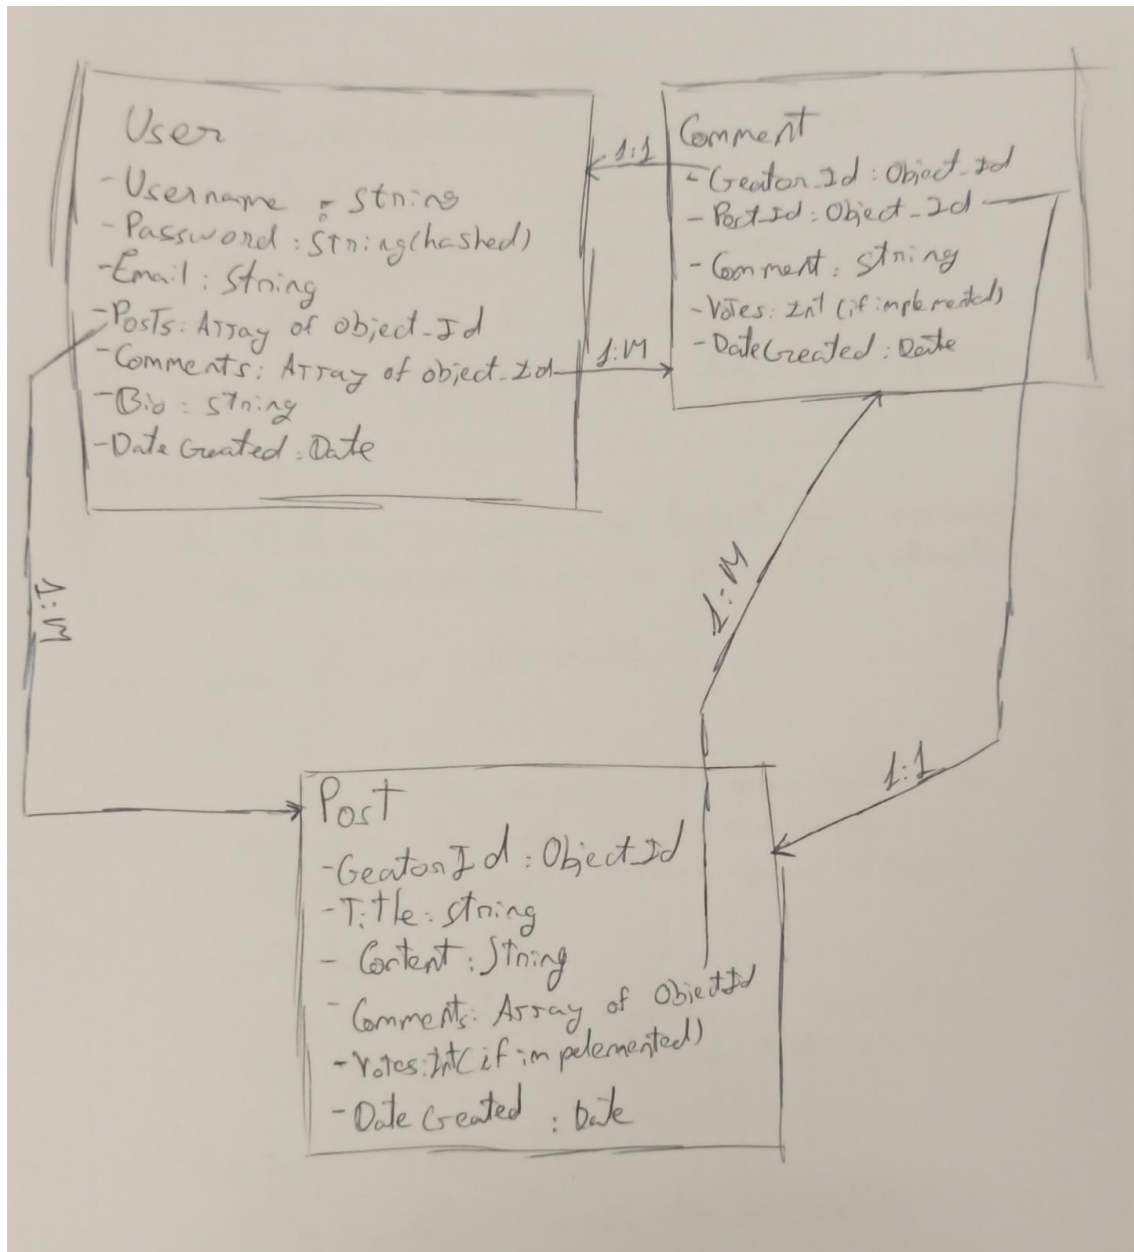 User
- Username : String
- Password : String(hashed)
- Email : String
- Posts : Array of object_Id
- Comments : Array of object_Id
- Bio : String
- Date Created : Date
1:1
1:M
Comment
- Creator_Id : Object_Id
- Post_Id : Object_Id
- Comment : String
- Votes : Int (if implemented)
- Date Created : Date
1:M
1:M
1:1
Post
- Creator Id : Object_Id
- Title : String
- Content : String
- Comments : Array of ObjectId
- Votes : Int (if impelemented)
- Date Created : Date